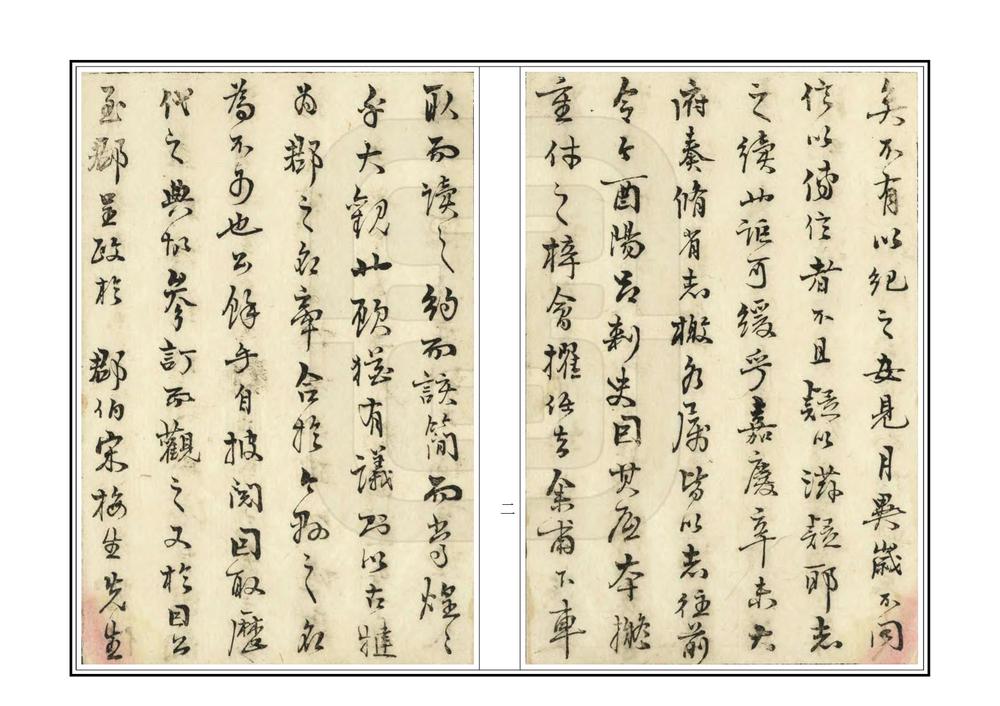 矣不有以紀之安見月異歲不同
信以傳信者不且疑以滋疑耶志
之續此詎可緩乎嘉慶辛未大
府奏脩省志檄各屬皆以志往前
令今酉陽呂刺史因其底本
重付之梓會擢任去余甫下車
取而讀之約而該簡而當煌之
乎大觀此顧猶有議則以古犍
為郡之名牽合於今縣之名
為不可也公餘手自披閱因取歷
代之典故參訂而觀之又於因公
至郡呈政於 郡伯宋梅生先生
二